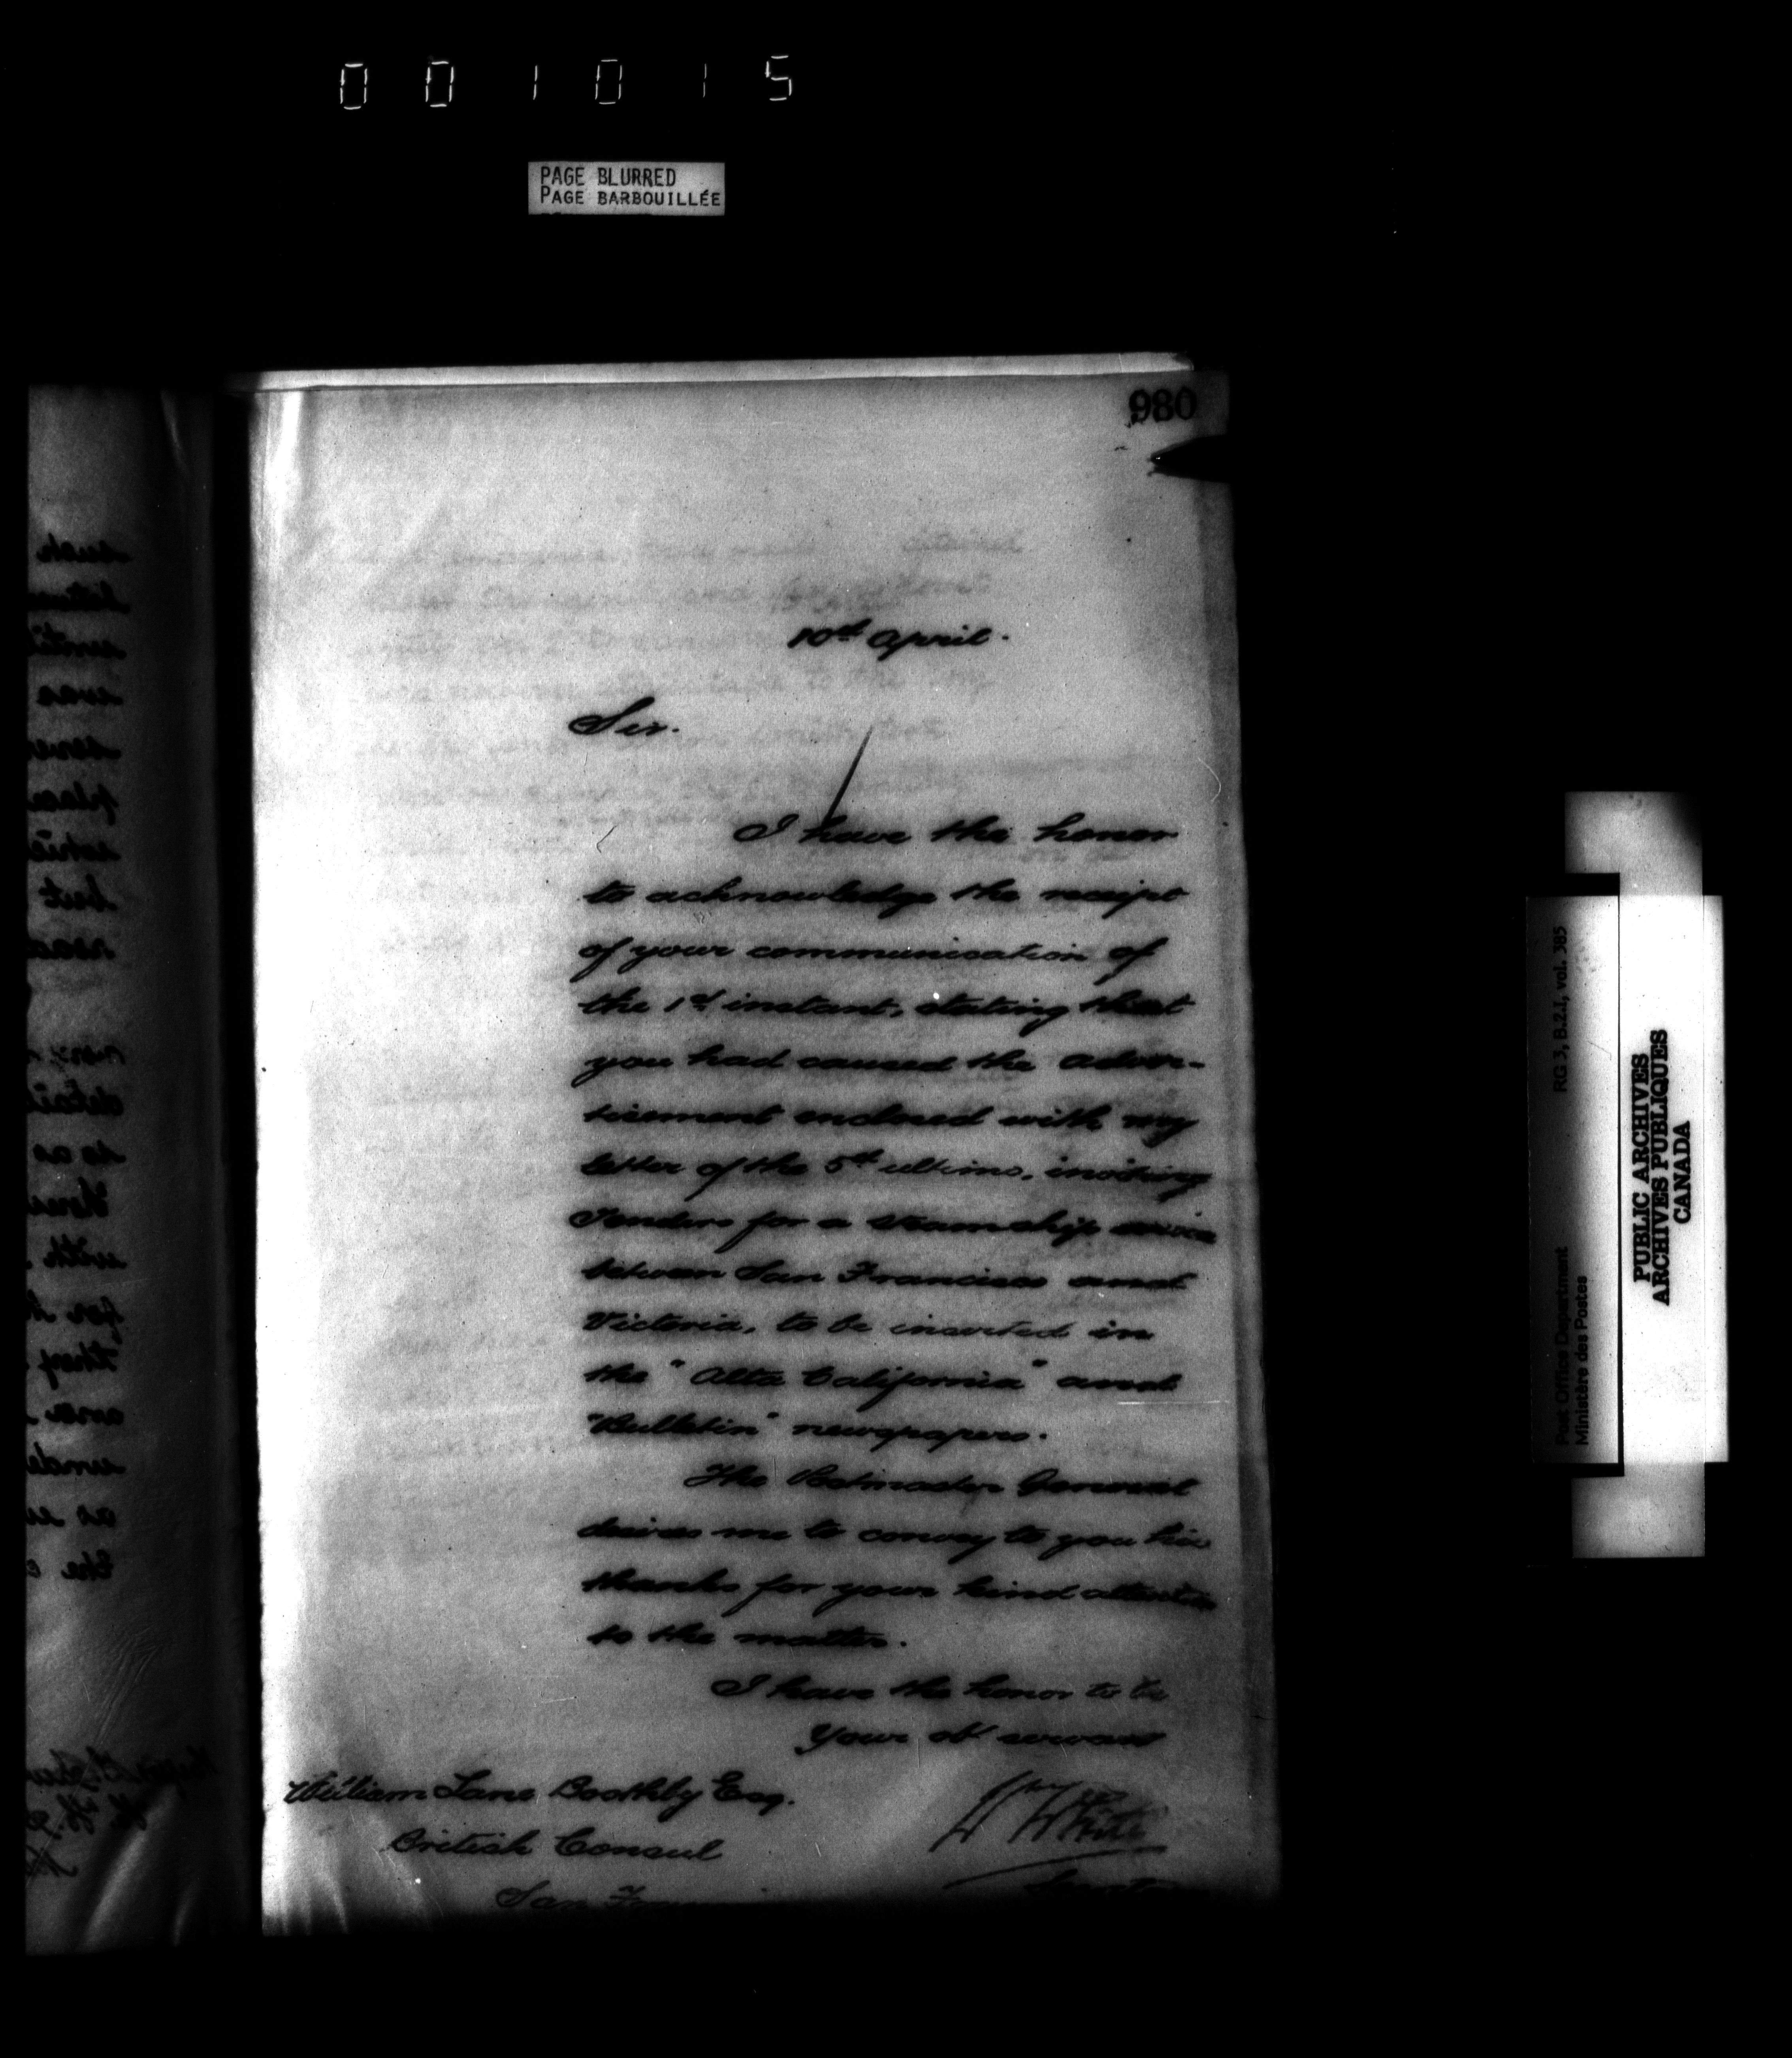 001015
PAGE BLURRED
PAGE BARBOUILLÉE
980
10th April.
Sir.
I have the honor
to acknowledge the receipt
of your communication of
the 1st instant, stating that
you had caused the adver-
tisement enclosed with my
letter of the 5th ultimo, inviting
Tenders for a steamship service
between San Francisco and
Victoria, to be inserted in
the "Alta California" and
"Bulletin" newspapers.
The Postmaster General
desires me to convey to you his
thanks for your kind attention
to the matter.
I have the honor to be
Your obt servant
William Lane Boothby Esq.
British Consul
San
White
RG 3, B.2.I, vol. 385
Post Office Department
Ministère des Postes
PUBLIC ARCHIVES
ARCHIVES PUBLIQUES
CANADA